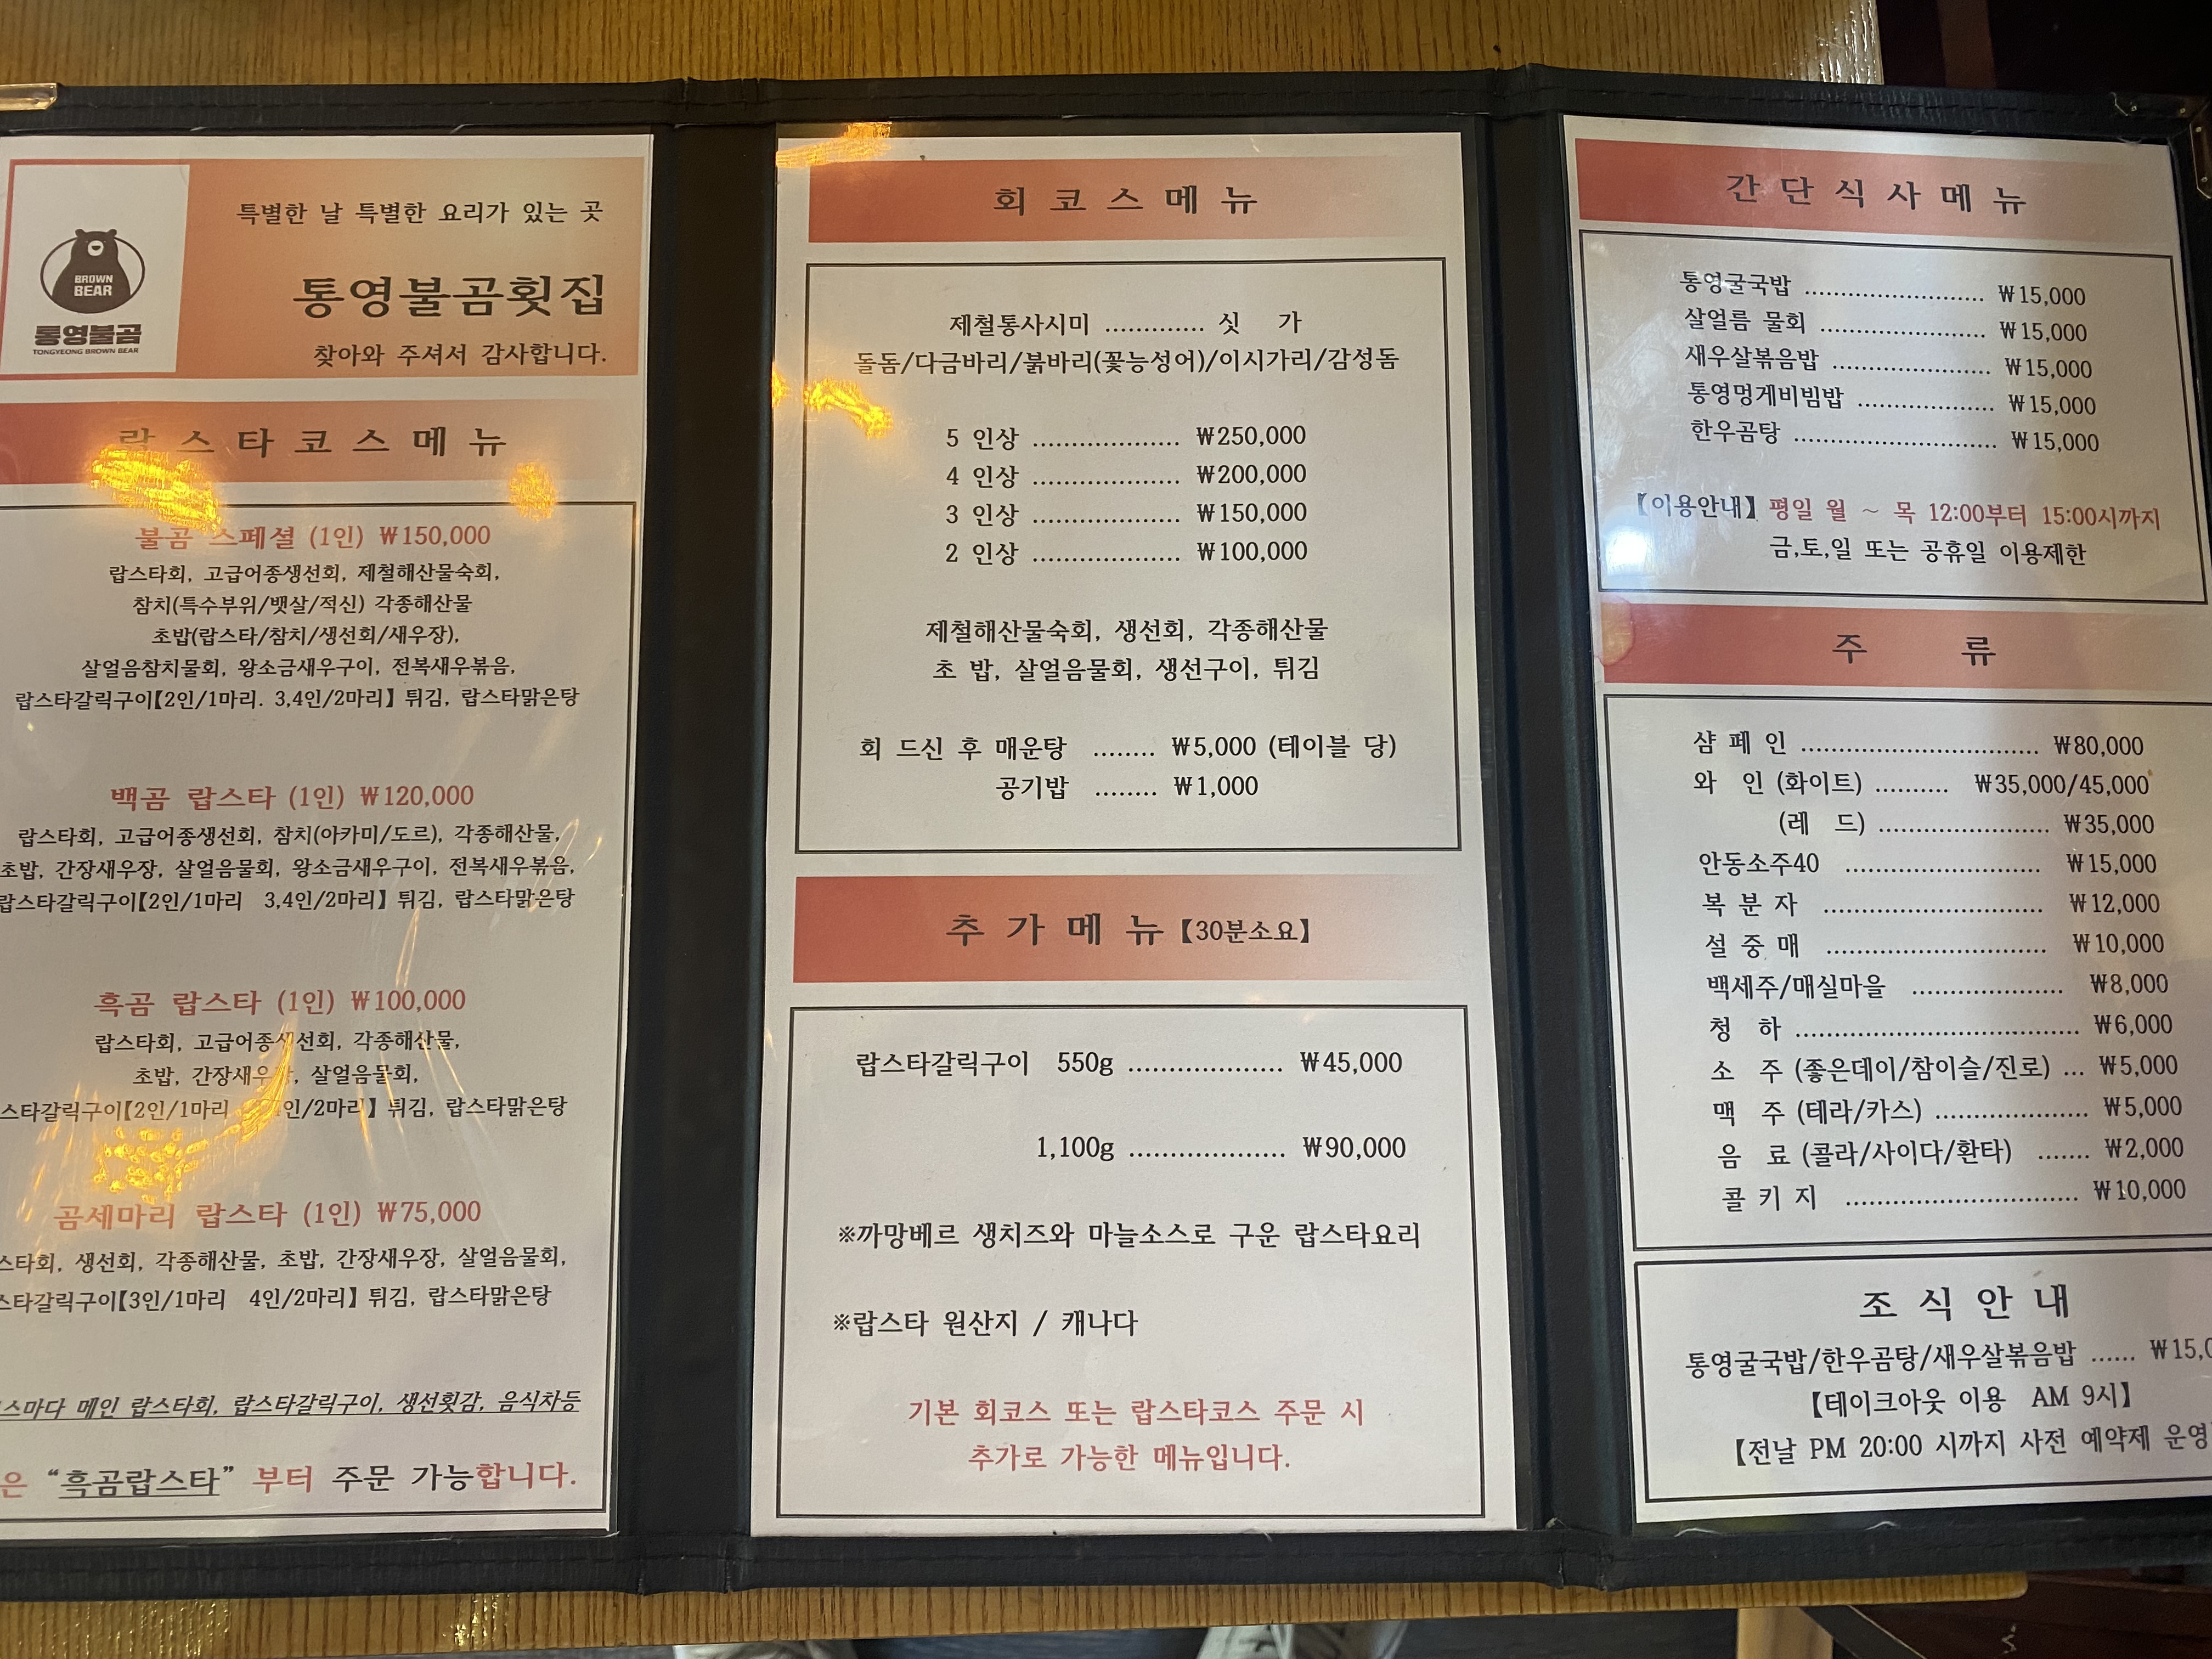 특별한 날 특별한 요리가 있는 곳
BROWN
BEAR
통영불곰
TONGYEONG BROWN BEAR
통영불곰횟집
찾아와 주셔서 감사합니다.
랍스타코스메뉴
불곰 스페셜 (1인) ₩150,000
랍스타회, 고급어종생선회, 제철해산물숙회,
참치(특수부위/뱃살/적신) 각종해산물
초밥(랍스타/참치/생선회/새우장),
살얼음참치물회, 왕소금새우구이, 전복새우볶음,
랍스타갈릭구이【2인/1마리. 3,4인/2마리】 튀김, 랍스타맑은탕
백곰 랍스타 (1인) ₩120,000
랍스타회, 고급어종생선회, 참치(아카미/도르), 각종해산물,
초밥, 간장새우장, 살얼음물회, 왕소금새우구이, 전복새우볶음,
랍스타갈릭구이【2인/1마리 3,4인/2마리】 튀김, 랍스타맑은탕
흑곰 랍스타 (1인) ₩100,000
랍스타회, 고급어종생선회, 각종해산물,
초밥, 간장새우장, 살얼음물회,
스타갈릭구이【2인/1마리 인/2마리】 튀김, 랍스타맑은탕
곰세마리 랍스타 (1인) ₩75,000
스타회, 생선회, 각종해산물, 초밥, 간장새우장, 살얼음물회,
스타갈릭구이【3인/1마리 4인/2마리】 튀김, 랍스타맑은탕
스마다 메인 랍스타회, 랍스타갈릭구이, 생선횟감, 음식차등
은 “흑곰랍스타” 부터 주문 가능합니다.
회코스메뉴
제철통사시미 ............. 싯 가
돌돔/다금바리/붉바리(꽃능성어)/이시가리/감성돔
5 인상 ................... ₩250,000
4 인상 ................... ₩200,000
3 인상 ................... ₩150,000
2 인상 ................... ₩100,000
제철해산물숙회, 생선회, 각종해산물
초 밥, 살얼음물회, 생선구이, 튀김
회 드신 후 매운탕 ........ ₩5,000 (테이블 당)
공기밥 ........ ₩1,000
추가메뉴【30분소요】
랍스타갈릭구이 550g .................... ₩45,000
1,100g .................... ₩90,000
※까망베르 생치즈와 마늘소스로 구운 랍스타요리
※랍스타 원산지 / 캐나다
기본 회코스 또는 랍스타코스 주문 시
추가로 가능한 메뉴입니다.
간단식사메뉴
통영굴국밥 ......................... ₩15,000
살얼름 물회 ....................... ₩15,000
새우살볶음밥 ...................... ₩15,000
통영멍게비빔밥 ................... ₩15,000
한우곰탕 ............................ ₩15,000
【이용안내】 평일 월 ~ 목 12:00부터 15:00시까지
금,토,일 또는 공휴일 이용제한
주 류
샴 페 인 ................................. ₩80,000
와 인 (화이트) .......... ₩35,000/45,000
(레 드) ........................ ₩35,000
안동소주40 ........................... ₩15,000
복 분 자 .............................. ₩12,000
설 중 매 .............................. ₩10,000
백세주/매실마을 ..................... ₩8,000
청 하 ....................................... ₩6,000
소 주 (좋은데이/참이슬/진로) ... ₩5,000
맥 주 (테라/카스) ..................... ₩5,000
음 료 (콜라/사이다/환타) ....... ₩2,000
콜 키 지 ................................ ₩10,000
조식안내
통영굴국밥/한우곰탕/새우살볶음밥 ...... ₩15,0
【테이크아웃 이용 AM 9시】
【전날 PM 20:00 시까지 사전 예약제 운영